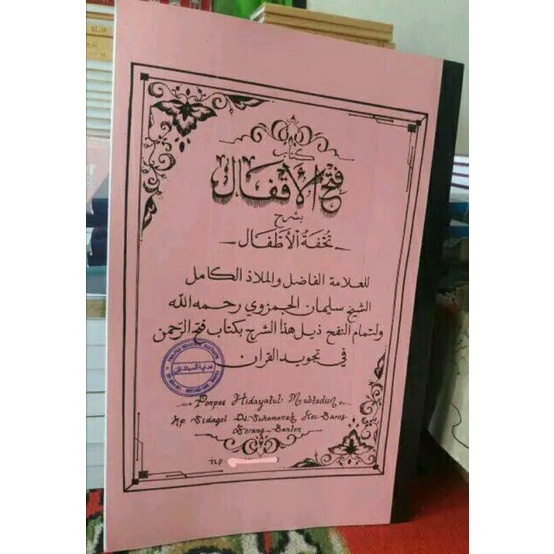 كتاب
فتح الأقفال
بشرح
تحفة الأطفال
للعلامة الفاضل والملاذ الكامل
الشيخ سليمان الجمزوي رحمه الله
ولتمام النفع ذيل هذا الشرح بكتاب فتح الرحمن
في تجويد القرآن
Ponpes Hidayatul Mubtadiin
Kp. Sidagel Ds. Sukamanah Kec. Baros
Serang-Banten
TLP